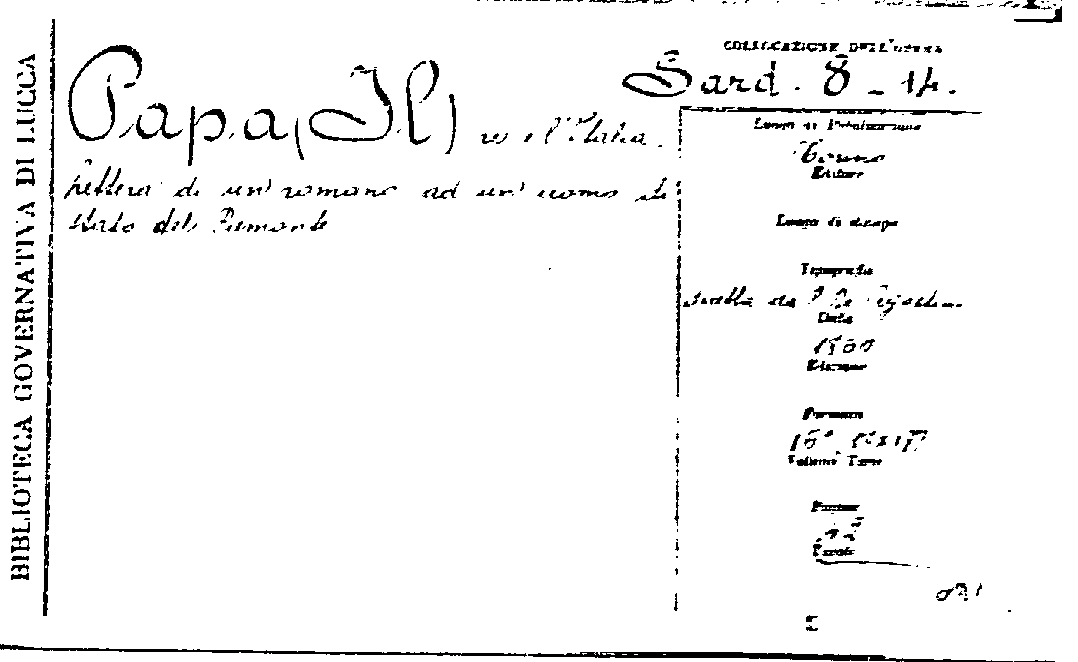 BIBLIOTECA GOVERNATIVA DI LUCCA
COLLOCAZIONE DELL'OPERA
Sard. 8 - 14.
Papa, (Il) e l'Italia.
Lettera di un romano ad un uomo di
stato del Piemonte
Luogo di Pubblicazione
Torino
Editore
Luogo di stampa
Tipografia
Data
1860
Edizione
Formato
16°
Volumi Tomi
Pagine
Tavole